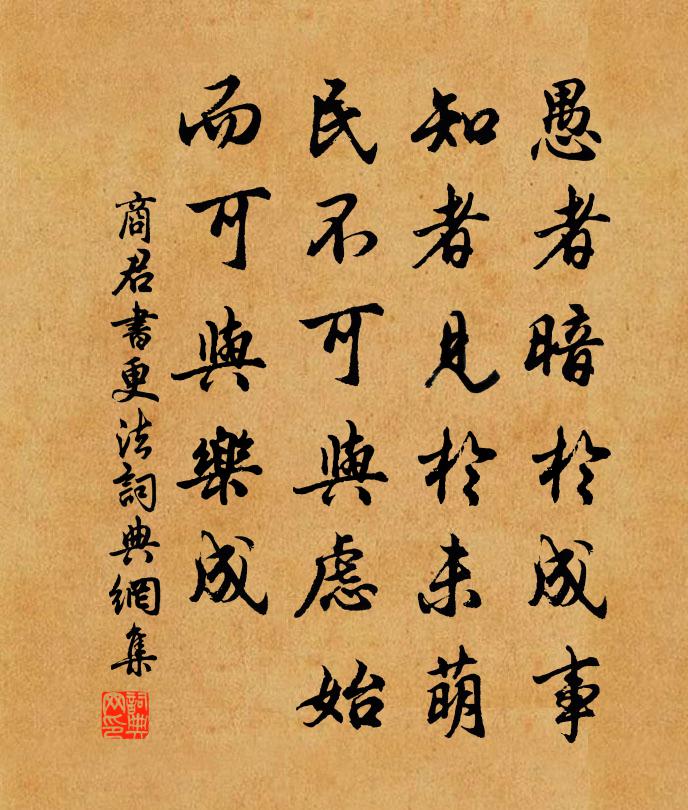 愚者暗於成事
知者見於未萌
民不可與慮始
而可與樂成
商君書更法詞典網集
詞典网印